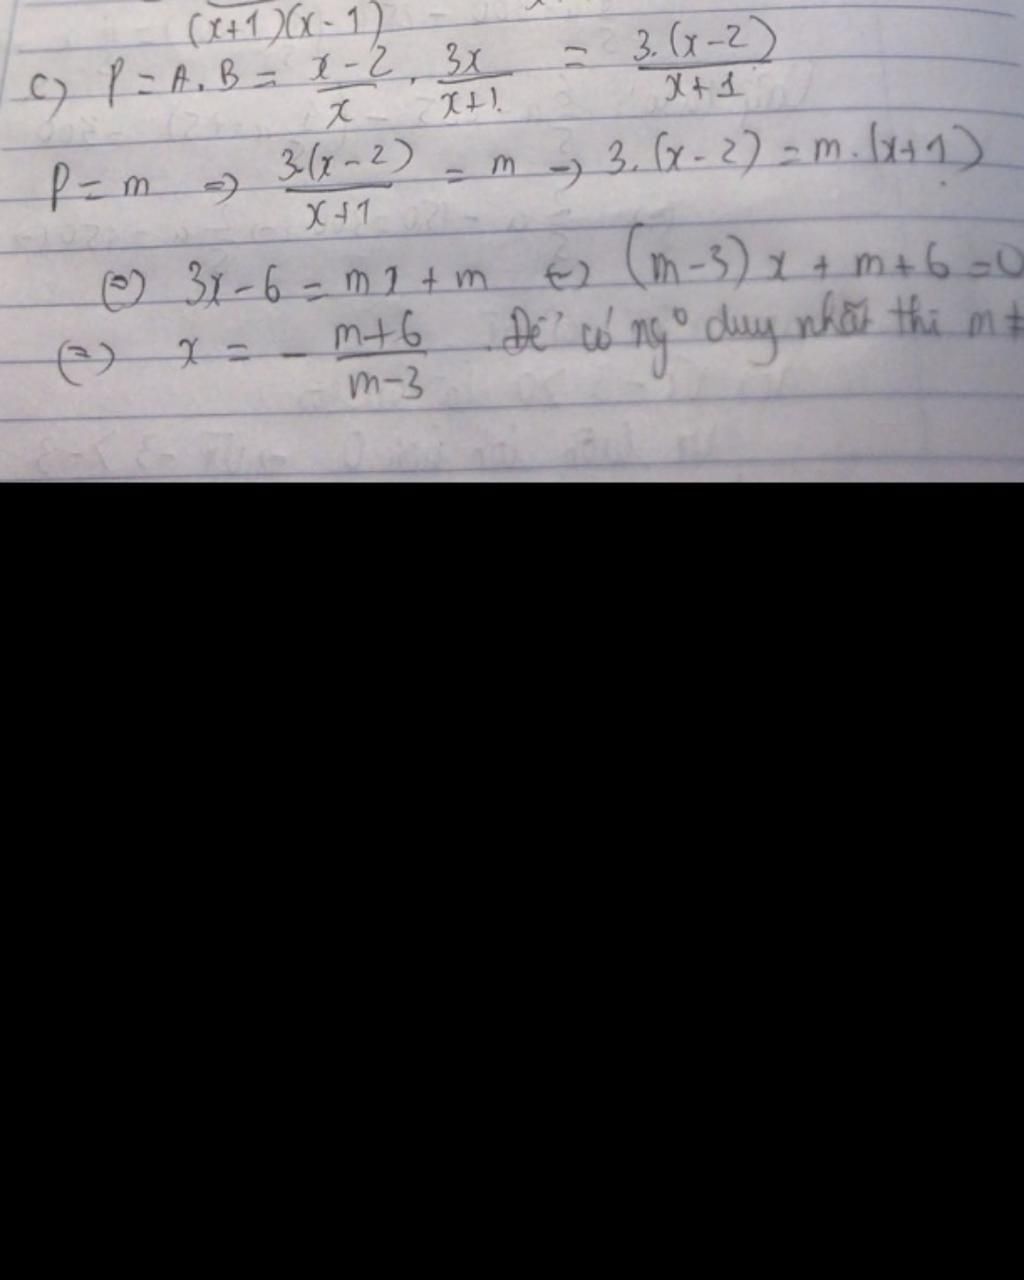 (x+1)(x-1)
c) P = A.B = \frac{x-2}{x} . \frac{3x}{x+1} = \frac{3.(x-2)}{x+1}
P = m => \frac{3.(x-2)}{x+1} = m -> 3.(x-2) = m.(x+1)
(=) 3x-6 = mx + m <-> (m-3)x + m+6 = 0
(=) x = - \frac{m+6}{m-3} . Để có ng° duy nhất thì m ≠